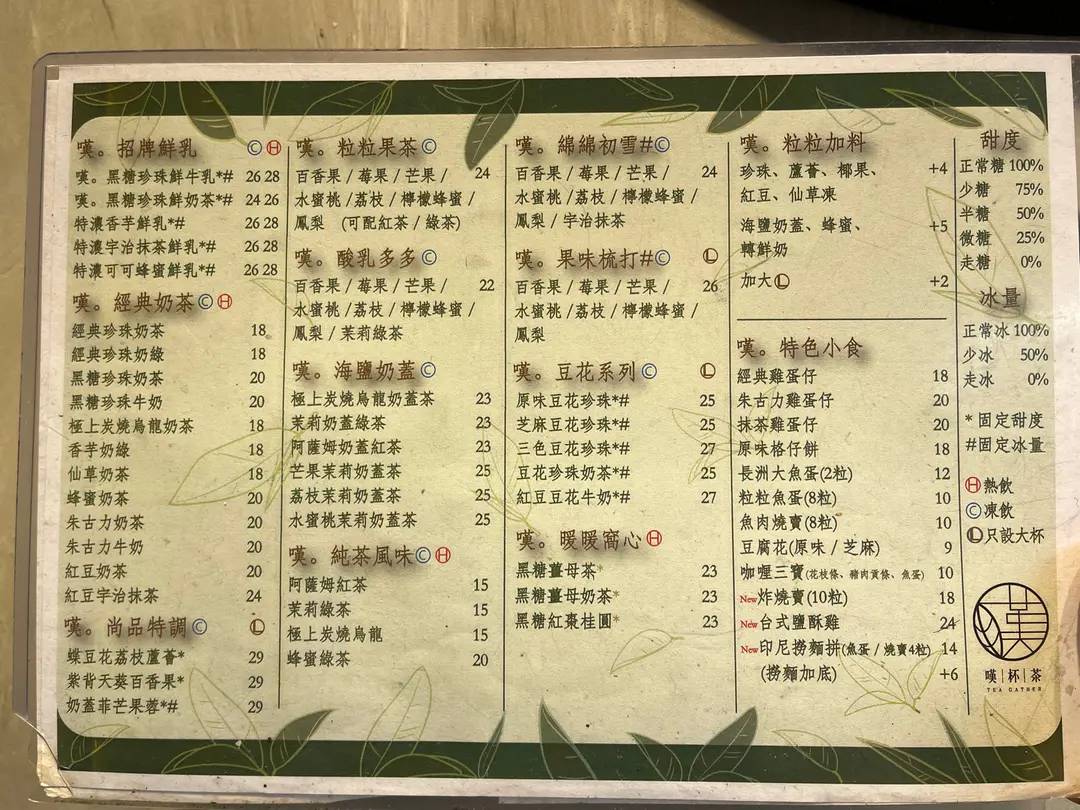 嘆。招牌鮮乳 Ⓒ Ⓗ
嘆。黑糖珍珠鮮牛乳*# 26 28
嘆。黑糖珍珠鮮奶茶*# 24 26
特濃香芋鮮乳*# 26 28
特濃宇治抹茶鮮乳*# 26 28
特濃可可蜂蜜鮮乳*# 26 28
嘆。經典奶茶 Ⓒ Ⓗ
經典珍珠奶茶 18
經典珍珠奶綠 18
黑糖珍珠奶茶 20
黑糖珍珠牛奶 20
極上炭燒烏龍奶茶 18
香芋奶綠 18
仙草奶茶 18
蜂蜜奶茶 20
朱古力奶茶 20
朱古力牛奶 20
紅豆奶茶 20
紅豆宇治抹茶 24
嘆。尚品特調 Ⓒ Ⓛ
蝶豆花荔枝蘆薈* 29
紫背天葵百香果* 29
奶蓋菲芒果蓉*# 29
嘆。粒粒果茶 Ⓒ
百香果 / 莓果 / 芒果 / 24
水蜜桃 / 荔枝 / 檸檬蜂蜜 /
鳳梨 (可配紅茶 / 綠茶)
嘆。酸乳多多 Ⓒ
百香果 / 莓果 / 芒果 / 22
水蜜桃 / 荔枝 / 檸檬蜂蜜 /
鳳梨 / 茉莉綠茶
嘆。海鹽奶蓋 Ⓒ
極上炭燒烏龍奶蓋茶 23
茉莉奶蓋綠茶 23
阿薩姆奶蓋紅茶 23
芒果茉莉奶蓋茶 25
荔枝茉莉奶蓋茶 25
水蜜桃茉莉奶蓋茶 25
嘆。純茶風味 Ⓒ Ⓗ
阿薩姆紅茶 15
茉莉綠茶 15
極上炭燒烏龍 15
蜂蜜綠茶 20
嘆。綿綿初雪# Ⓒ
百香果 / 莓果 / 芒果 / 24
水蜜桃 / 荔枝 / 檸檬蜂蜜 /
鳳梨 / 宇治抹茶
嘆。果味梳打# Ⓒ Ⓛ
百香果 / 莓果 / 芒果 / 26
水蜜桃 / 荔枝 / 檸檬蜂蜜 /
鳳梨
嘆。豆花系列 Ⓒ Ⓛ
原味豆花珍珠*# 25
芝麻豆花珍珠*# 25
三色豆花珍珠*# 27
豆花珍珠奶茶*# 25
紅豆豆花牛奶*# 27
嘆。暖暖窩心 Ⓗ
黑糖薑母茶* 23
黑糖薑母奶茶* 23
黑糖紅棗桂圓* 23
嘆。粒粒加料
珍珠、蘆薈、椰果、 +4
紅豆、仙草凍
海鹽奶蓋、蜂蜜、 +5
轉鮮奶
加大 Ⓛ +2
嘆。特色小食
經典雞蛋仔 18
朱古力雞蛋仔 20
抹茶雞蛋仔 20
原味格仔餅 18
長洲大魚蛋(2粒) 12
粒粒魚蛋(8粒) 10
魚肉燒賣(8粒) 10
豆腐花(原味 / 芝麻) 9
咖喱三寶(花枝條、豬肉貢條、魚蛋) 10
New炸燒賣(10粒) 18
New台式鹽酥雞 24
New印尼撈麵拼(魚蛋 / 燒賣4粒) 14
(撈麵加底) +6
甜度
正常糖 100%
少糖 75%
半糖 50%
微糖 25%
走糖 0%
冰量
正常冰 100%
少冰 50%
走冰 0%
* 固定甜度
#固定冰量
Ⓗ熱飲
Ⓒ凍飲
Ⓛ只設大杯
嘆|杯|茶
TEA GATHER